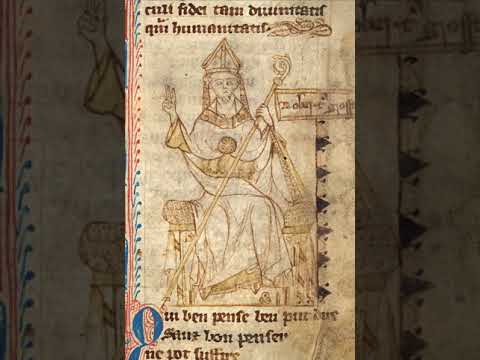 culi fidei tam diuinitatis
qm humanitatis.
Robert gross
Qui ben pense ben put dire
Sanz bon penser
ne pot suffire